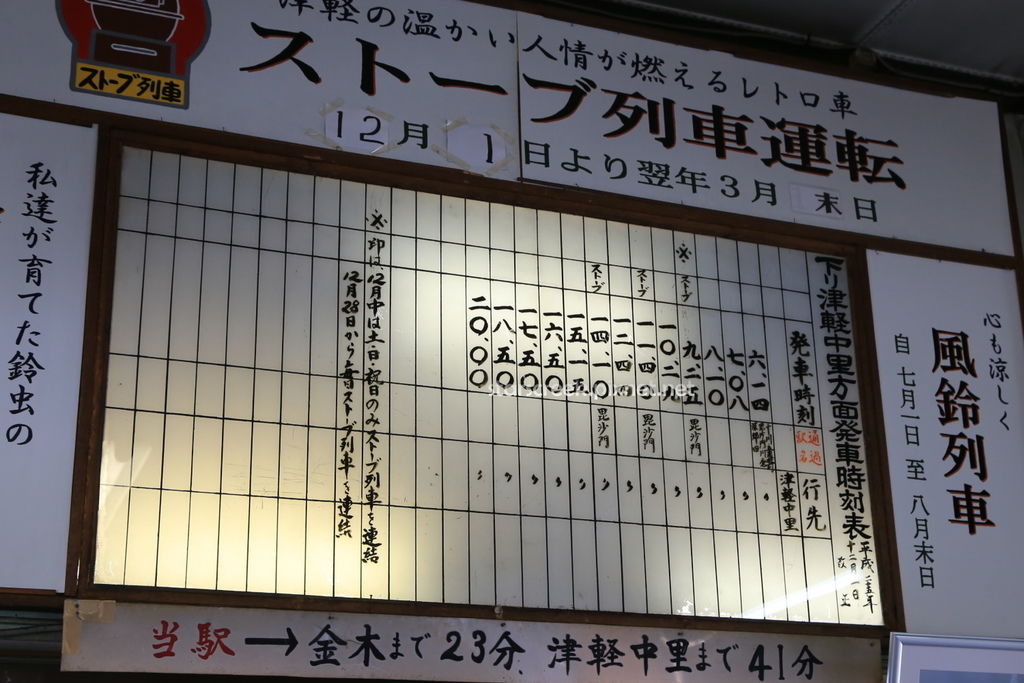 津軽の温かい人情が燃えるレトロ車
ストーブ列車運転
12月1日より翌年3月末日
ストーブ列車
心も涼しく
風鈴列車
自 七月一日 至 八月末日
下り津軽中里方面発車時刻表
平成二五年
十二月一日
改正
発車時刻 通過駅名 行先
六、一四 津軽中里
七、〇八 〃
八、一〇 〃
※ ストーブ 九、二五 毘沙門 〃
一〇、二九 〃
ストーブ 一一、四〇 毘沙門 〃
一二、四〇 〃
ストーブ 一四、一〇 毘沙門 〃
一五、一五 〃
一六、五〇 〃
一七、五〇 〃
一八、五〇 〃
二〇、〇〇 〃
※印は、12月中は土日祝日のみストーブ列車を連結
12月28日から毎日ストーブ列車を連結
私達が育てた鈴虫の
当駅→金木まで23分 津軽中里まで41分